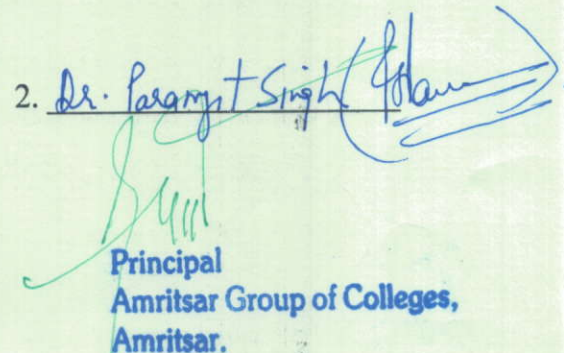 2. Dr. Paramjit Singh
Principal
Amritsar Group of Colleges,
Amritsar.